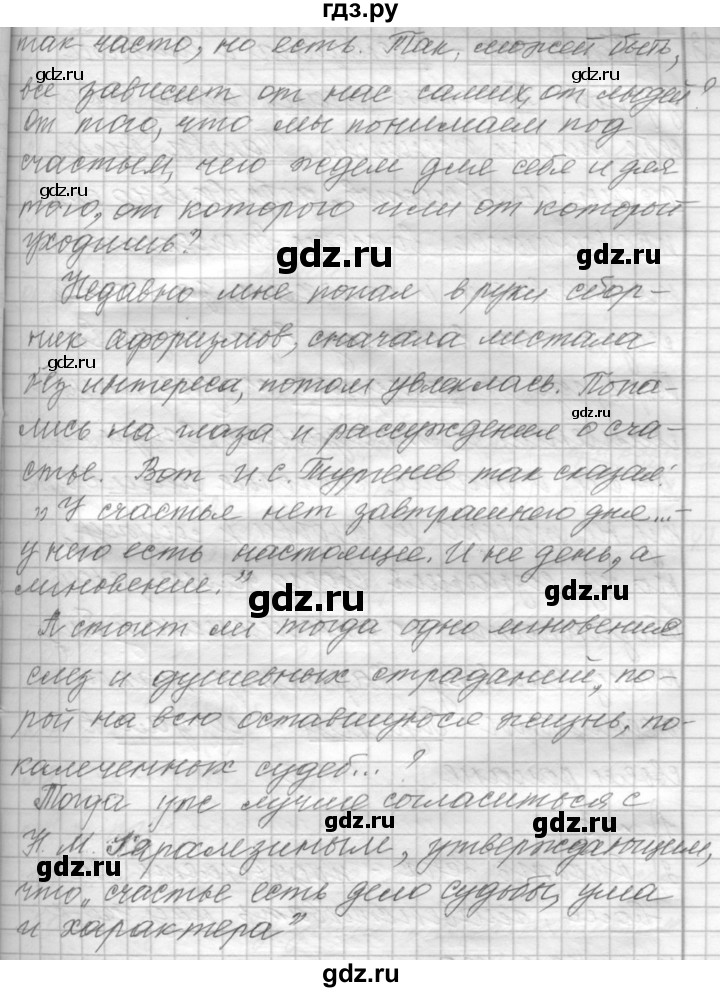 гдз.ру
так часто, но есть. Так, может быть,
gdz.ru
gdz.ru
всё зависит от нас самих, от людей?
От того, что мы понимаем под
счастьем, чего ждем для себя и для
gdz.ru
того, от которого или от который
уходишь?
gdz.ru
gdz.ru
Недавно мне попал в руки сбор-
ник афоризмов, сначала листала
gdz.ru
без интереса, потом увлеклась. Попа-
gdz.ru
лись на глаза и рассуждения о сча-
стье. Вот И.С. Тургенев так сказал:
„У счастья нет завтрашнего дня...-
у него есть настоящее. И не день, а
мгновение."
gdz.ru
gdz.ru
А стоит ли тогда одно мгновение
слез и душевных страданий, по-
рой на всю оставшуюся жизнь, по-
калеченных судеб...?
Тогда уж лучше согласиться с
gdz.ru
gdz.ru
Н.М. Карамзиным, утверждающим,
gdz.ru
что „счастье есть дело судьбы, ума
и характера"
gdz.ru